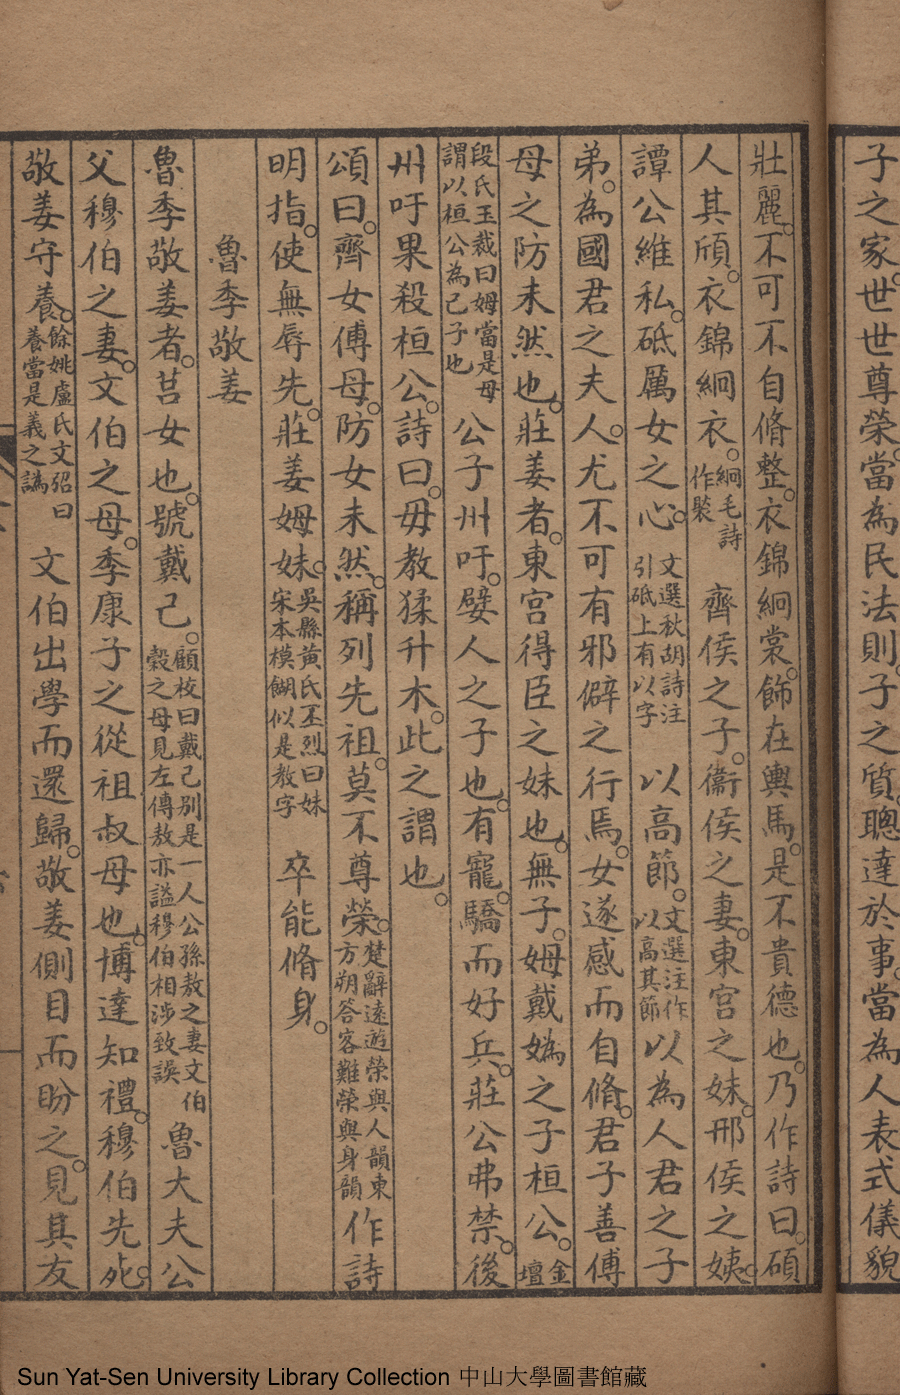 子之家。世世尊榮。當為民法則。子之質。聰達於事。當為人表式儀貌
壯麗。不可不自脩整。衣錦絅裳。飾在輿馬。是不貴德也。乃作詩曰。碩
人其頎。衣錦絅衣。絅毛詩作褧齊侯之子。衞侯之妻。東宮之妹。邢侯之姨。
譚公維私。砥厲女之心。文選秋胡詩注引砥上有以字以高節。文選注作以高其節以為人君之子
弟。為國君之夫人。尤不可有邪僻之行焉。女遂感而自脩。君子善傅
母之防未然也。莊姜者。東宮得臣之妹也。無子。姆戴媯之子桓公。金壇
段氏玉裁曰姆當是母謂以桓公為己子也公子州吁。嬖人之子也。有寵。驕而好兵。莊公弗禁。後
州吁果殺桓公。詩曰。毋教猱升木。此之謂也。
頌曰。齊女傅母。防女未然。稱列先祖。莫不尊榮。楚辭遠遊榮與人韻東方朔答客難榮與身韻作詩
明指。使無辱先。莊姜姆妹。吳縣黃氏丕烈曰妹宋本模餬似是教字卒能脩身。
魯季敬姜
魯季敬姜者。莒女也。號戴己。顧校曰戴己別是一人公孫敖之妻文伯穀之母見左傳敖亦謚穆伯相涉致誤魯大夫公
父穆伯之妻。文伯之母。季康子之從祖叔母也。博達知禮。穆伯先死。
敬姜守養。餘姚盧氏文弨曰養當是義之譌文伯出學而還歸。敬姜側目而盼之。見其友
Sun Yat-Sen University Library Collection 中山大學圖書館藏